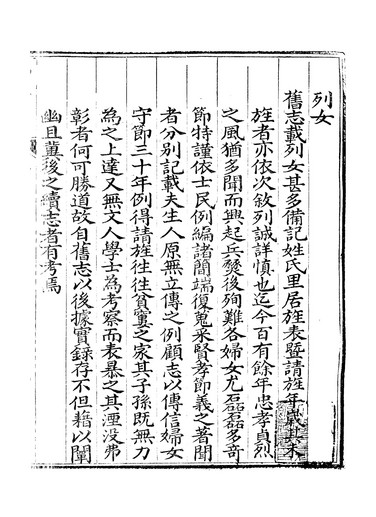 列女
舊志載列女甚多備記姓氏里居旌表暨請旌年歲其未
旌者亦依次敘列誠詳慎也迄今百有餘年忠孝貞烈
之風猶多聞而興起兵燹後殉難各婦女尤磊磊多奇
節特謹依士民例編諸簡端復蒐采賢孝節義之著聞
者分別記載夫生人原無立傳之例顧志以傳信婦女
守節三十年例得請旌往往貧窶之家其子孫既無力
為之上達又無文人學士為考察而表暴之其湮没弗
彰者何可勝道故自舊志以後據實錄存不但藉以闡
幽且冀後之續志者有考焉